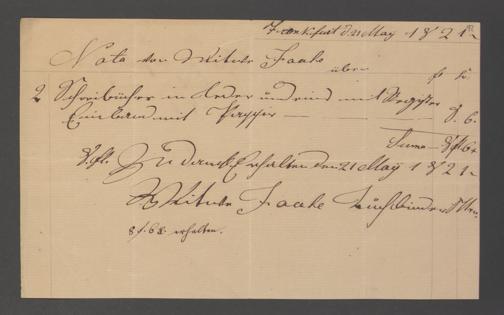 Frankfurt d. 21 May 1821
Nota von Witwe Jaake
über f x
2 Schreibücher in leder und eins mit Register
Einband mit Papper — 8. 6.
Suma — 8 f 6 x
Zu danck Erhalten den 21 May 1821
Witwe Jaake buchbinder
8 f. 6 x erhalten.